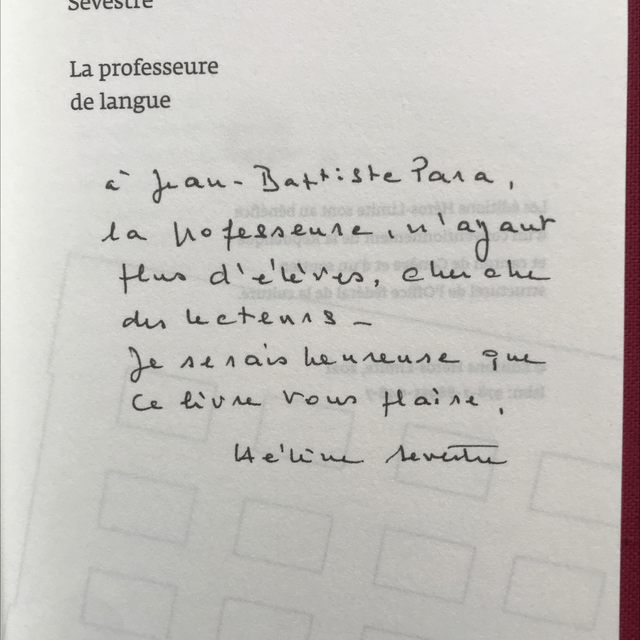 Sevestre
La professeure
de langue
à Jean-Baptiste Para,
la professeure, n'ayant
plus d'élèves, cherche
des lecteurs –
Je serais heureuse que
ce livre vous plaise.
Hélène Sevestre